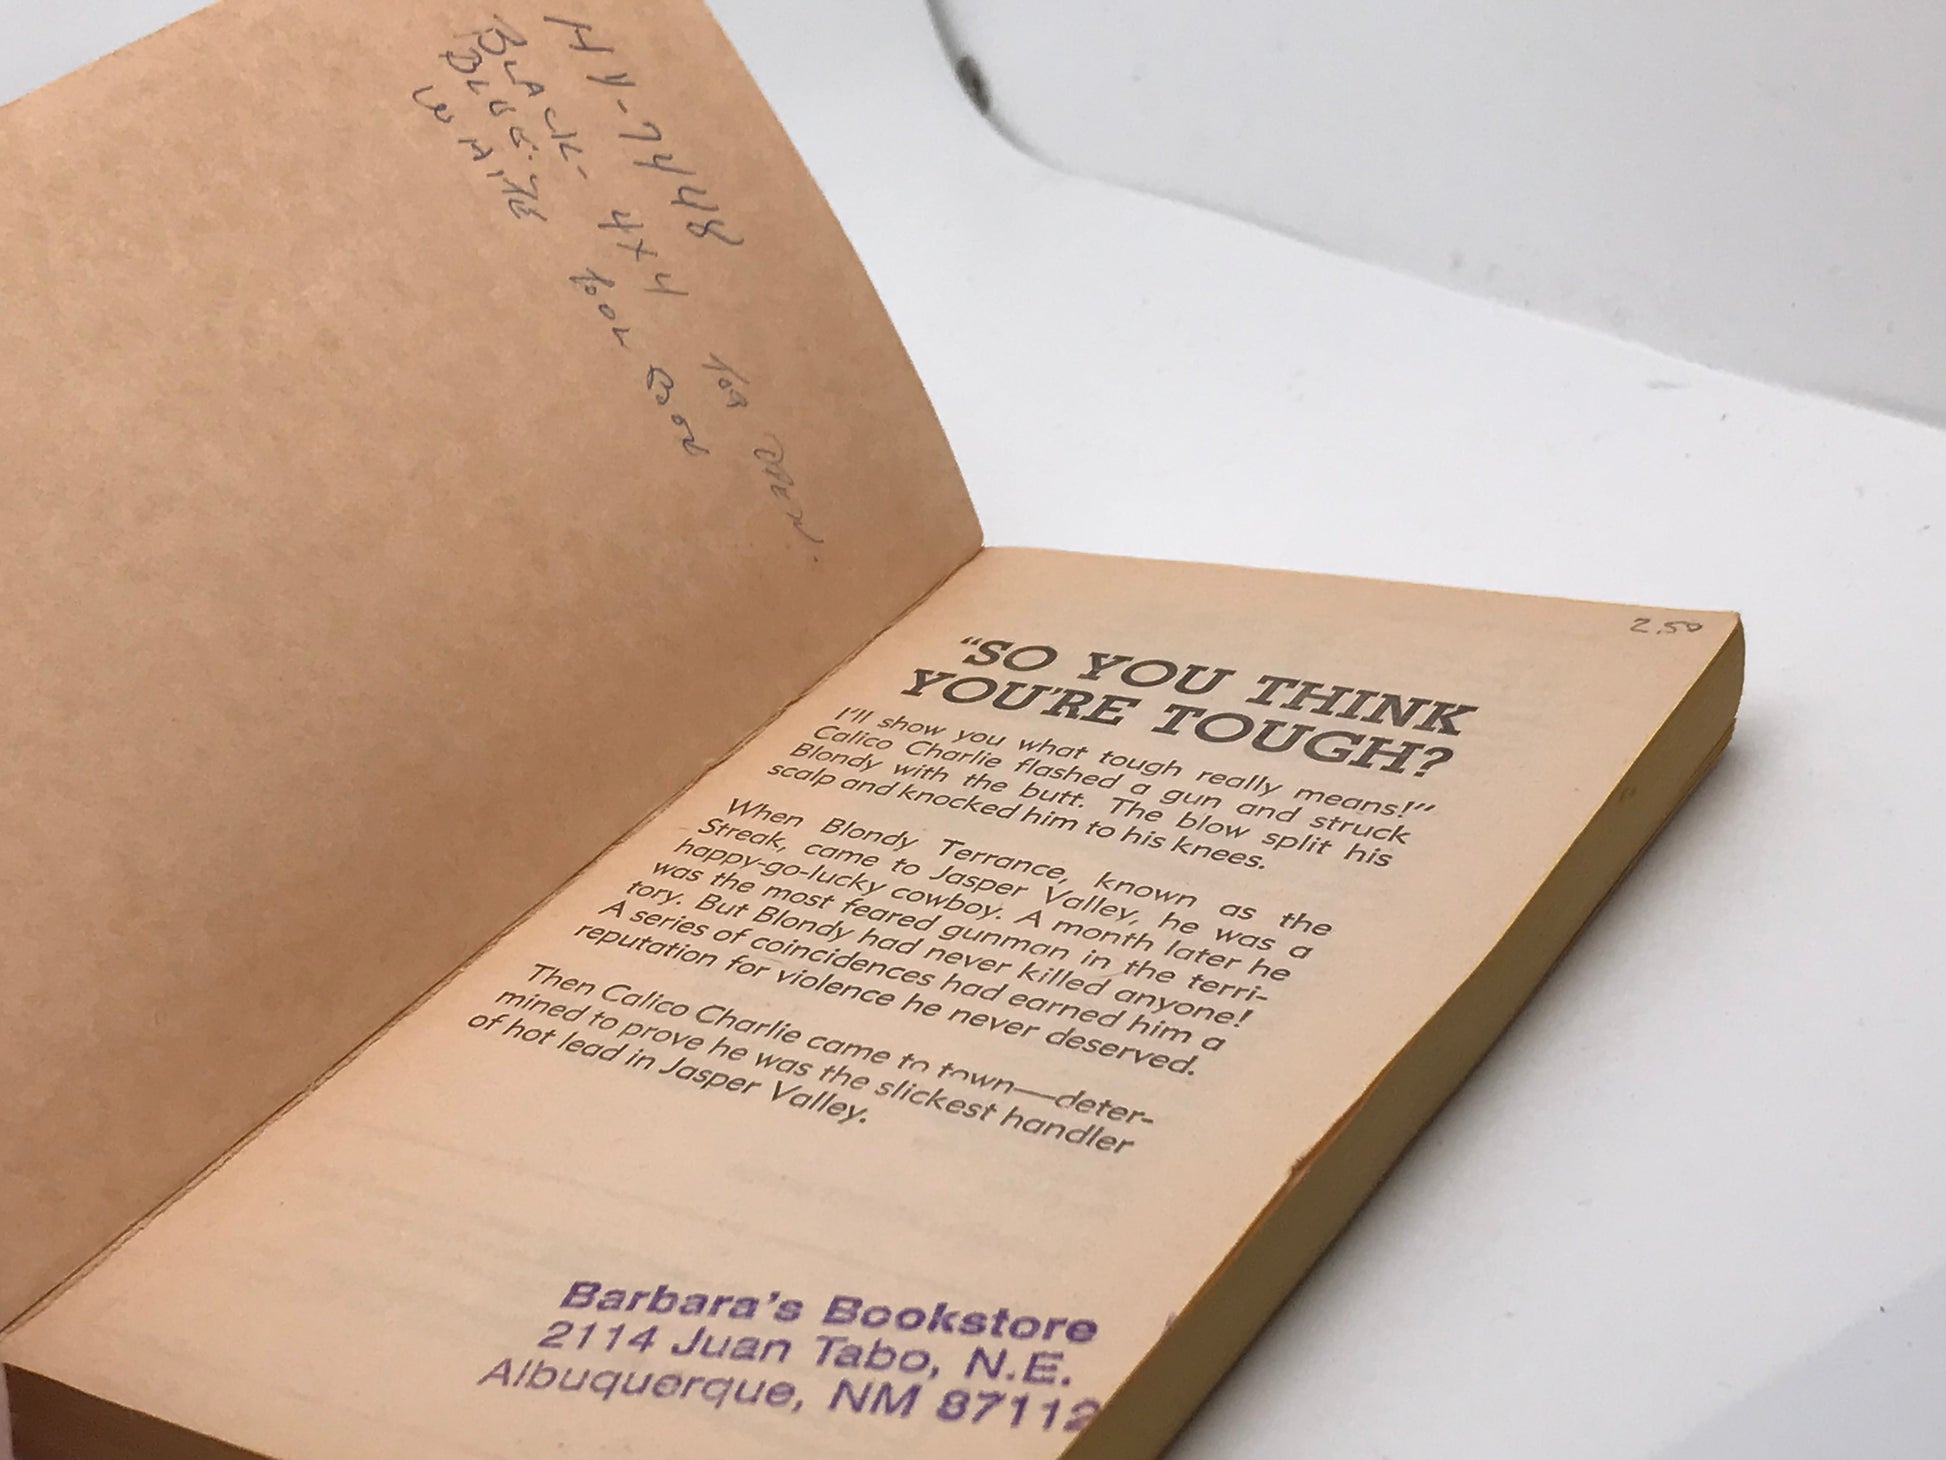 HY-7448
BLACK- 4x4
BLUE-
WHITE
FOR
2.50
"SO YOU THINK
YOU'RE TOUGH?
I'll show you what tough really means!"
Calico Charlie flashed a gun and struck
Blondy with the butt. The blow split his
scalp and knocked him to his knees.
When Blondy Terrance, known as the
Streak, came to Jasper Valley, he was a
happy-go-lucky cowboy. A month later he
was the most feared gunman in the terri-
tory. But Blondy had never killed anyone!
A series of coincidences had earned him a
reputation for violence he never deserved.
Then Calico Charlie came to town—deter-
mined to prove he was the slickest handler
of hot lead in Jasper Valley.
Barbara's Bookstore
2114 Juan Tabo, N.E.
Albuquerque, NM 87112